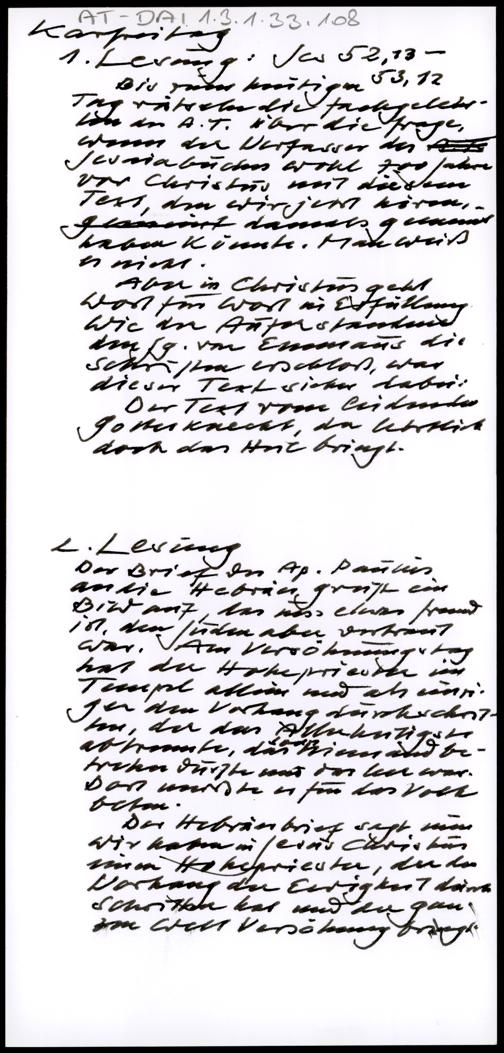 AT-DAI 1.3.1.33.108
Karfreitag
1. Lesung: Jes 52,13 –
53,12
Bis zum heutigen
Tag rätseln die Fachgelehr-
ten des A.T. über die Frage,
wenn der Verfasser des
Jesaiabuches wohl 700 Jahre
vor Christus mit diesem
Text, den wir jetzt hören,
gemeint damals gemeint
haben könnte. Man weiß
es nicht.
Aber in Christus geht
Wort für Wort in Erfüllung
Wie der Auferstandene
den Jg. von Emmaus die
Schriften erschloß, war
dieser Text sicher dabei:
Der Text vom leidenden
Gottesknecht, der letztlich
doch das Heil bringt.
2. Lesung
Der Brief des Ap. Paulus
an die Hebräer, greift ein
Bild auf, das uns etwas fremd
ist, den Juden aber vertraut
war. Am Versöhnungstag
hat der Hohepriester im
Tempel allein und als einzi-
ger den Vorhang durchschrit-
ten, der das Allerheiligste
abtrennte, das sonst niemand be-
treten durfte und das leer war.
Dort mußte er für das Volk
beten.
Der Hebräerbrief sagt nun
wir haben in Jesus Christus
einen Hohepriester, der den
Vorhang der Ewigkeit durch
schritten hat und der gan-
zen Welt Versöhnung bringt.